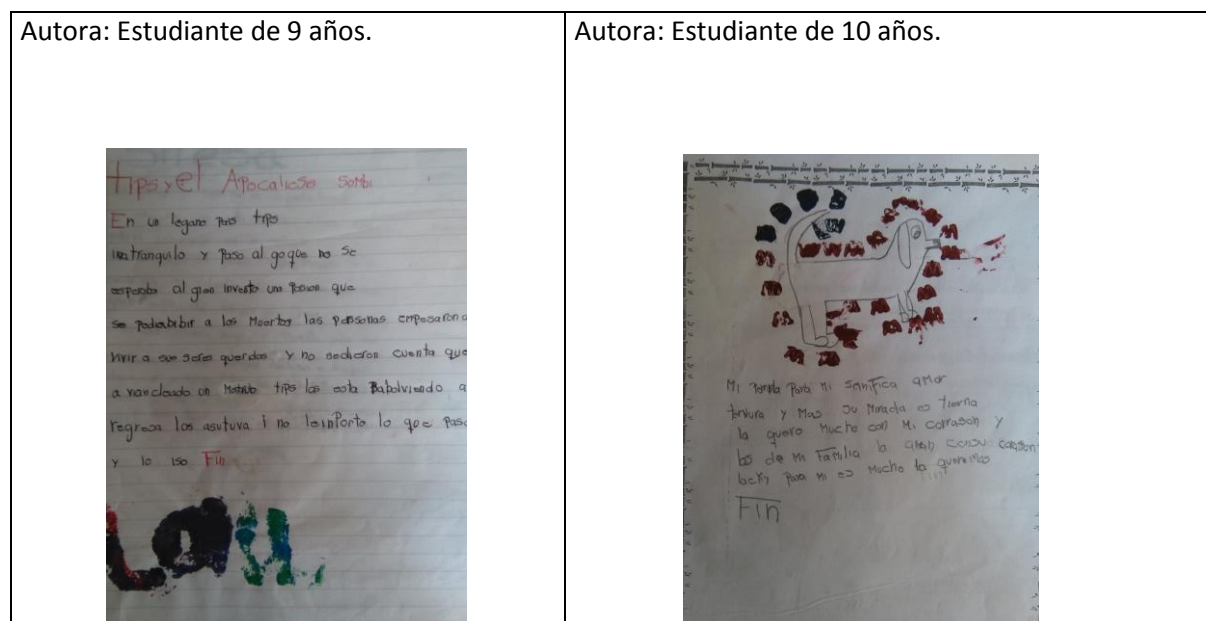 Autora: Estudiante de 9 años.
tips y el Apocalieso sombi
En un legano pais tips
tranquilo y Paso al go que no se
esperaba al gien invento una Posion que
se podia bibir a los Muertos las personas empesaron a
vivir a sus seres queridos y no sedieron cuenta que
a van clado un tips los esta Babolviendo a
regresa los asutuva i no leinPorto lo que Paso
y lo iso Fin
Autora: Estudiante de 10 años.
Mi Perrita Para mi sinifica amor
ternura y Mas su Mirada es tierna
la quiero Mucho con Mi corrason y
los de mi Familia la con su corason
lacky Para mi es Mucho la queremos
Fin